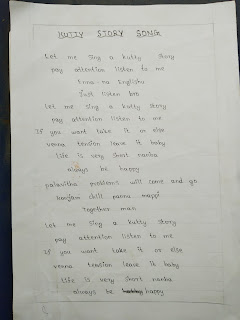 KUTTY STORY SONG
Let me sing a kutty story
pay attention listen to me
Enna-na Englishu
Just listen bro
Let me sing a kutty story
pay attention listen to me
If you want take it or else
venna tension leave it baby
life is very short nanba
always be happy
palavitha problems will come and go
konjam chill pannu maapi
together man
Let me sing a kutty story
pay attention listen to me
If you want take it or else
venna tension leave it baby
life is very short nanba
always be happy